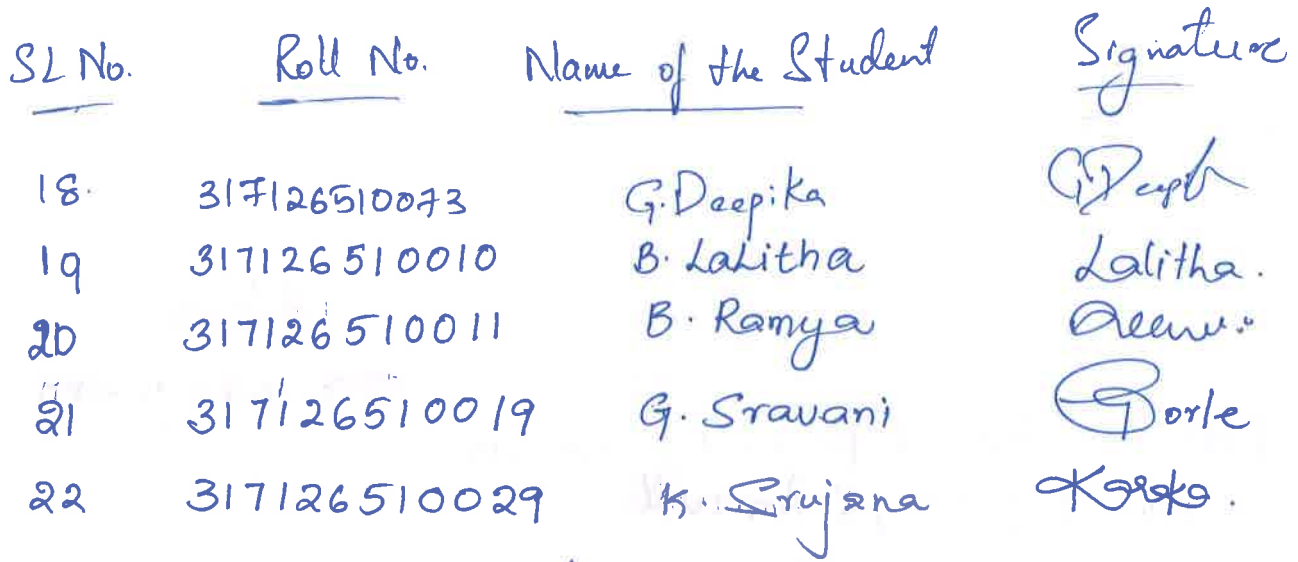 SL No. Roll No. Name of the Student Signature
18. 317126510073 G.Deepika
19 317126510010 B. Lalitha Lalitha.
20 317126510011 B. Ramya
21 317126510019 G. Sravani Gorle
22 317126510029 K. Srujana